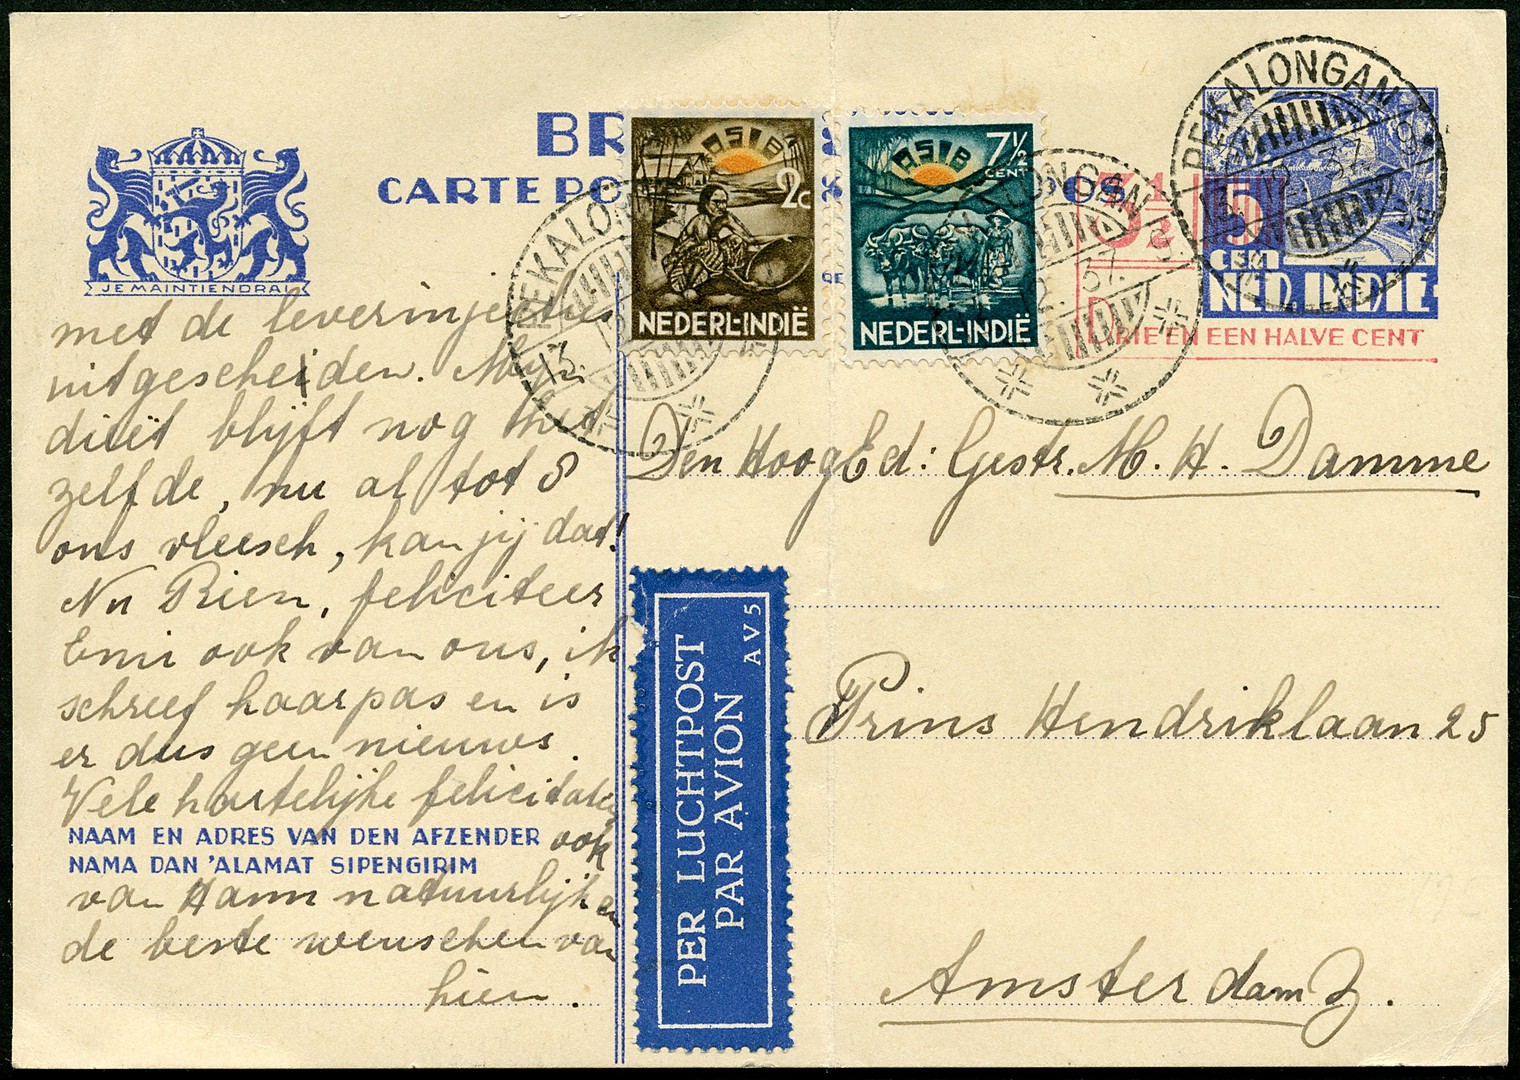 BR
CARTE PO
JE MAINTIENDRAI
ASIB
2c
NEDERL-INDIË
ASIB
7½
CENT
NEDERL-INDIË
PEKALONGAN
13.
37
PEKALONGAN
37
3½
5
cent
NED. INDIE
DRIE EN EEN HALVE CENT
met de leverinjecties
uitgescheiden. Mijn
diëet blijft nog het
zelfde, nu al tot 8
ons vleesch, kan jij dat!
Nu Rien, feliciteer
Emi ook van ons, ik
schreef haar pas en is
er dus geen nieuws.
Vele hartelijke felicitaties
NAAM EN ADRES VAN DEN AFZENDER ook
NAMA DAN 'ALAMAT SIPENGIRIM
van Hann natuurlijk en
de beste wenschen van
hien.
Den HoogEd: Gestr. M. H. Damme
Prins Hendriklaan 25
Amsterdam Z.
PER LUCHTPOST
PAR AVION
AV5